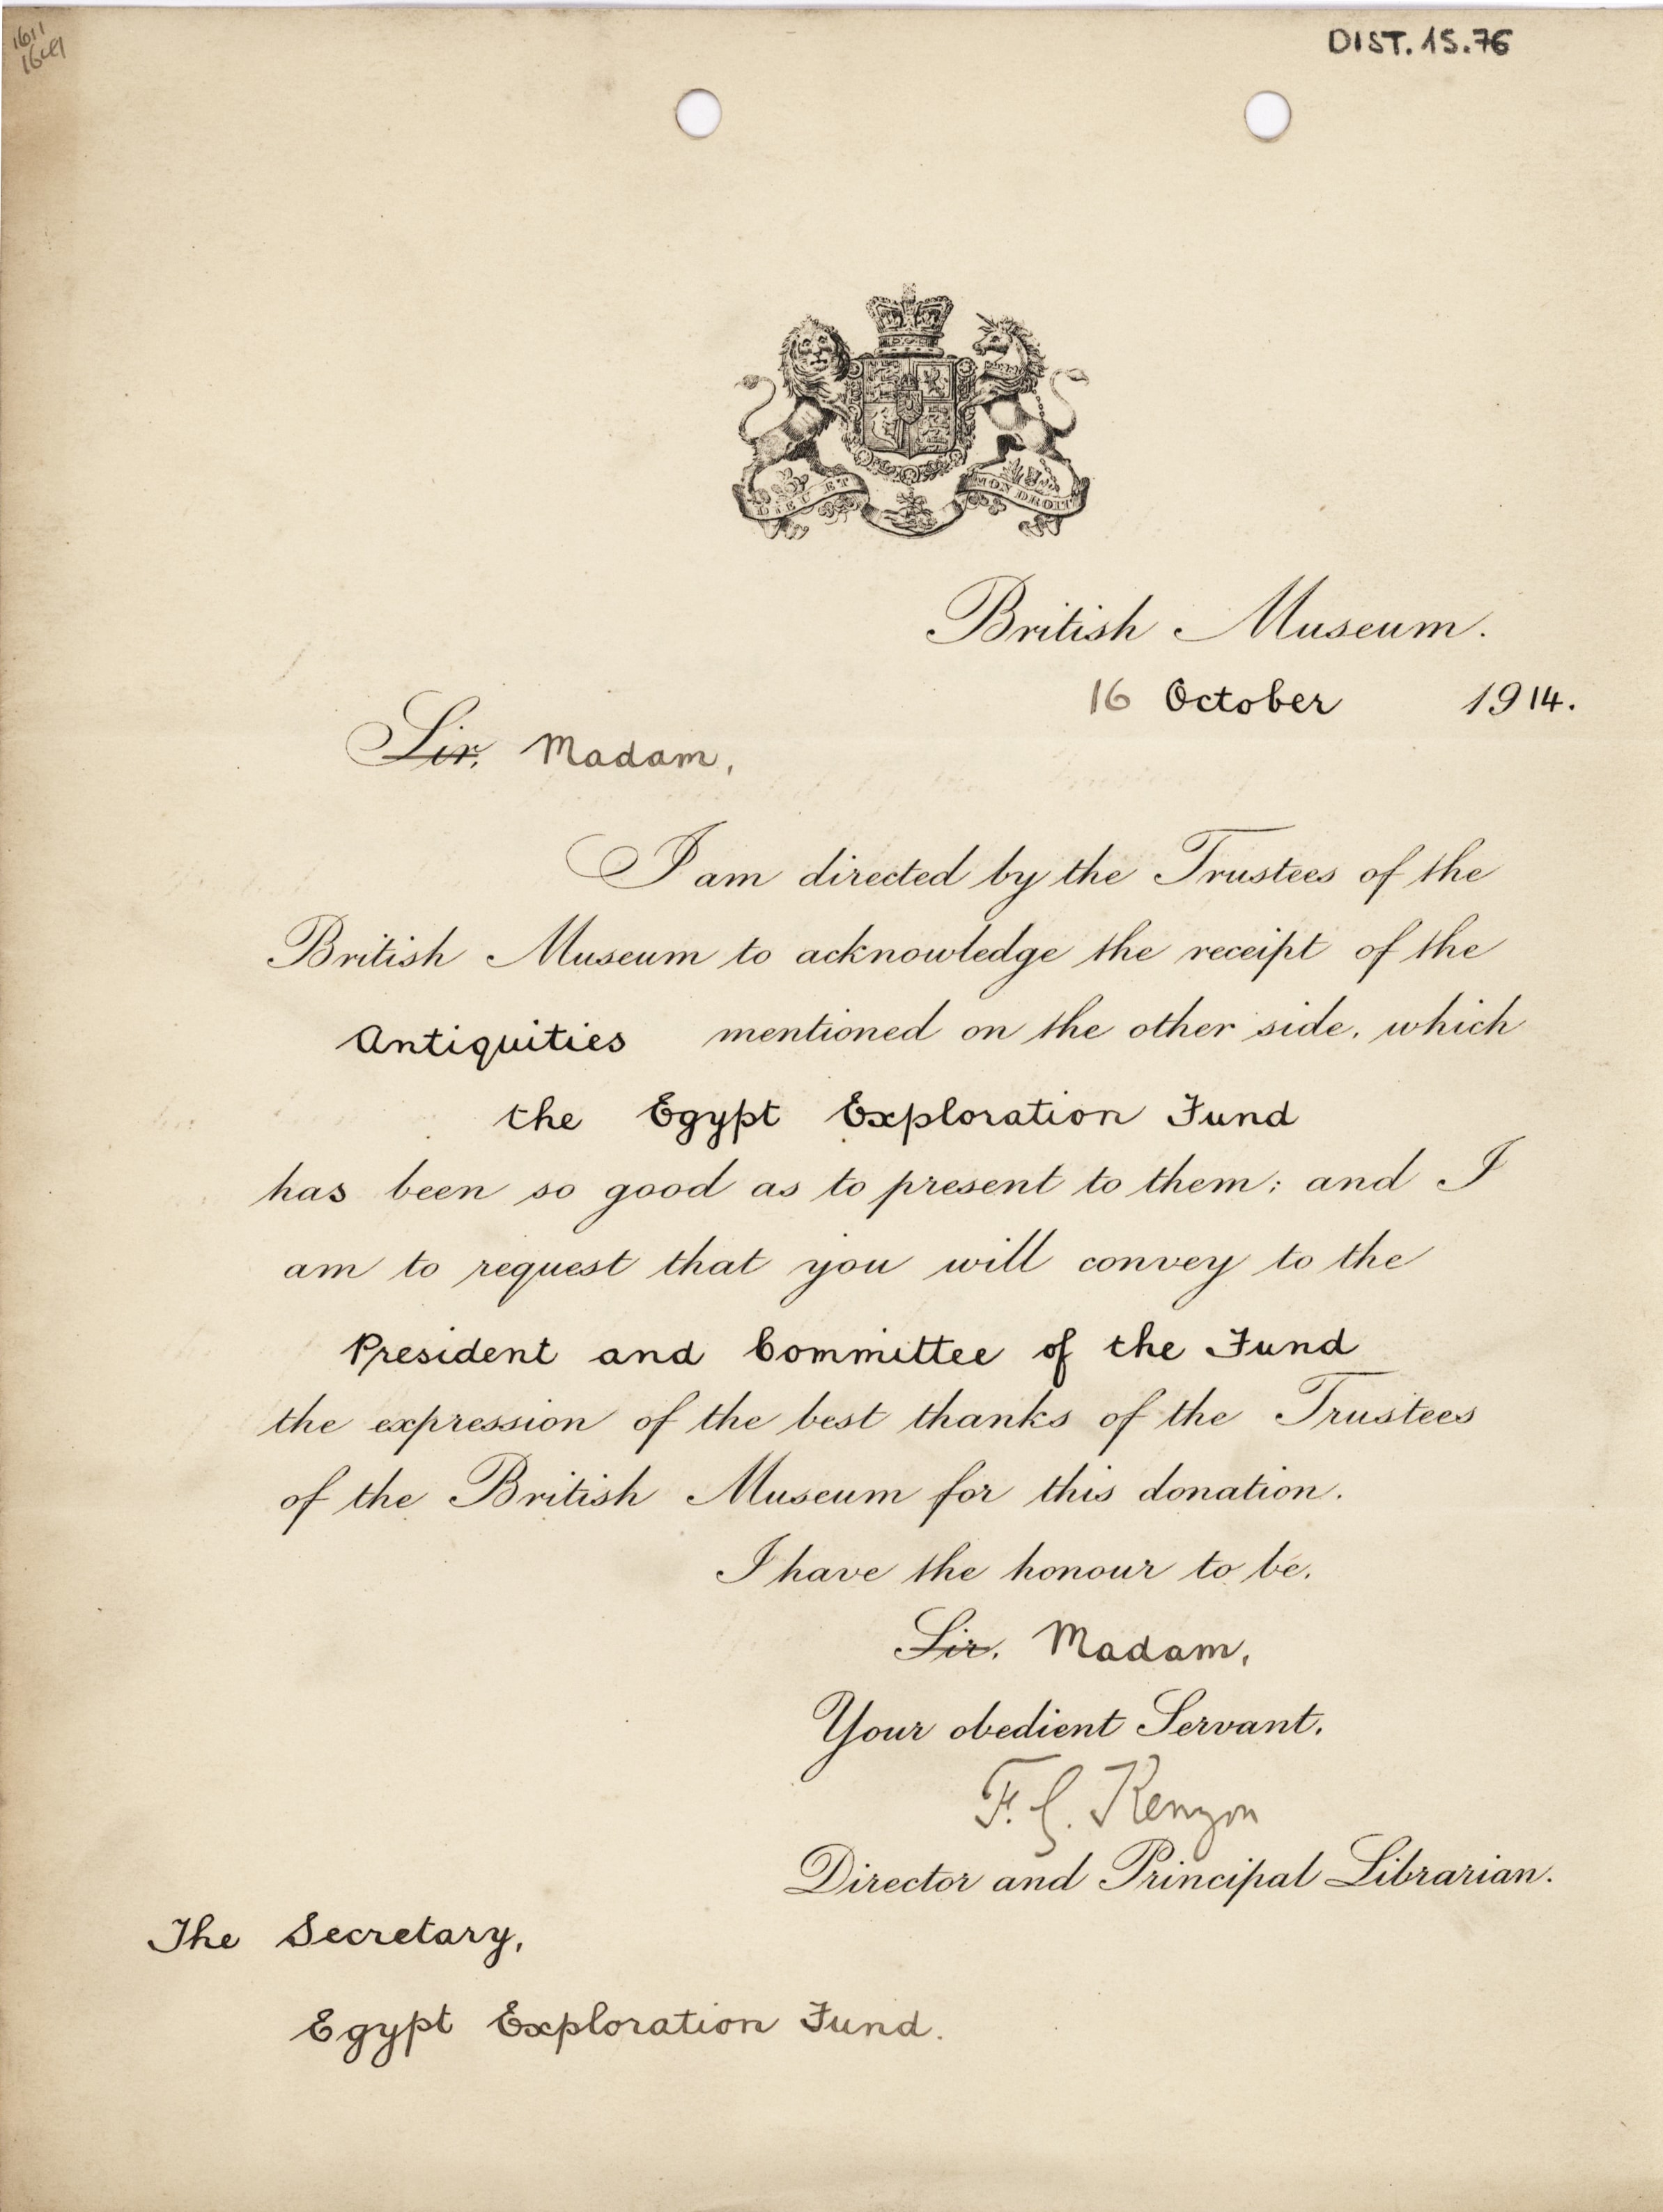 DIST.15.76
DIEU ET MON DROIT
British Museum.
16 October 1914.
Sir, Madam,
I am directed by the Trustees of the
British Museum to acknowledge the receipt of the
Antiquities mentioned on the other side, which
the Egypt Exploration Fund
has been so good as to present to them; and I
am to request that you will convey to the
President and Committee of the Fund
the expression of the best thanks of the Trustees
of the British Museum for this donation.
I have the honour to be,
Sir, Madam,
Your obedient Servant,
F. G. Kenyon
Director and Principal Librarian.
The Secretary,
Egypt Exploration Fund.